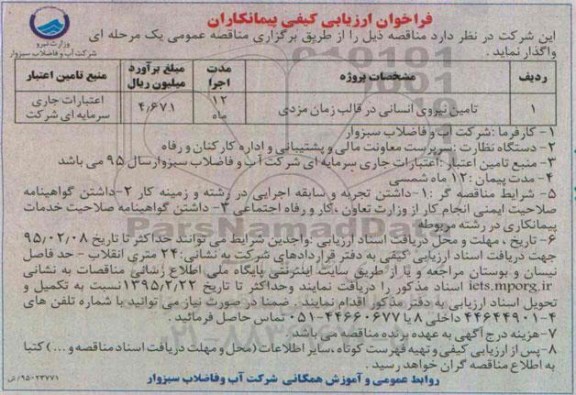 فراخوان ارزیابی کیفی پیمانکاران
وزارت نیرو
شرکت آب و فاضلاب سبزوار
این شرکت در نظر دارد مناقصه ذیل را از طریق برگزاری مناقصه عمومی یک مرحله ای
واگذار نماید.
ردیف مشخصات پروژه مدت اجرا مبلغ برآورد میلیون ریال منبع تامین اعتبار
۱ تامین نیروی انسانی در قالب زمان مزدی ۱۲ ماه ۴,۶۷۱ اعتبارات جاری سرمایه ای شرکت
۱- کارفرما: شرکت آب و فاضلاب سبزوار
۲- دستگاه نظارت: سرپرست معاونت مالی و پشتیبانی و اداره کارکنان و رفاه
۳- منبع تامین اعتبار: اعتبارات جاری سرمایه ای شرکت آب و فاضلاب سبزوار سال ۹۵ می باشد
۴- مدت پیمان: ۱۲ ماه شمسی
۵- شرایط مناقصه گر: ۱- داشتن تجربه و سابقه اجرایی در رشته و زمینه کار ۲- داشتن گواهینامه
صلاحیت ایمنی انجام کار از وزارت تعاون، کار و رفاه اجتماعی ۳- داشتن گواهینامه صلاحیت خدمات
پیمانکاری در رشته مربوطه
۶- تاریخ، مهلت و محل دریافت اسناد ارزیابی: واجدین شرایط می توانند حداکثر تا تاریخ ۹۵/۰۲/۰۸
جهت دریافت اسناد ارزیابی کیفی به دفتر قراردادهای شرکت به نشانی: ۲۴ متری انقلاب - حد فاصل
نیسان و بوستان مراجعه و یا از طریق سایت اینترنتی پایگاه ملی اطلاع رسانی مناقصات به نشانی
iets.mporg.ir اسناد مذکور را دریافت نمایند و حداکثر تا تاریخ ۱۳۹۵/۲/۲۲ نسبت به تکمیل و
تحویل اسناد ارزیابی به دفتر مذکور اقدام نمایند. ضمنا در صورت نیاز می توانید با شماره تلفن های
۴-۴۴۶۴۴۹۰۱ داخلی ۸ یا ۴۴۶۶۰۶۷۷-۰۵۱ تماس حاصل فرمائید.
۷- هزینه درج آگهی به عهده برنده مناقصه می باشد
۸- پس از ارزیابی کیفی و تهیه فهرست کوتاه، سایر اطلاعات (محل و مهلت دریافت اسناد مناقصه و ...) کتبا
به اطلاع مناقصه گران خواهد رسید.
روابط عمومی و آموزش همگانی شرکت آب و فاضلاب سبزوار
۹۵۰۲۳۷۷۱/ش
ParsNamadData